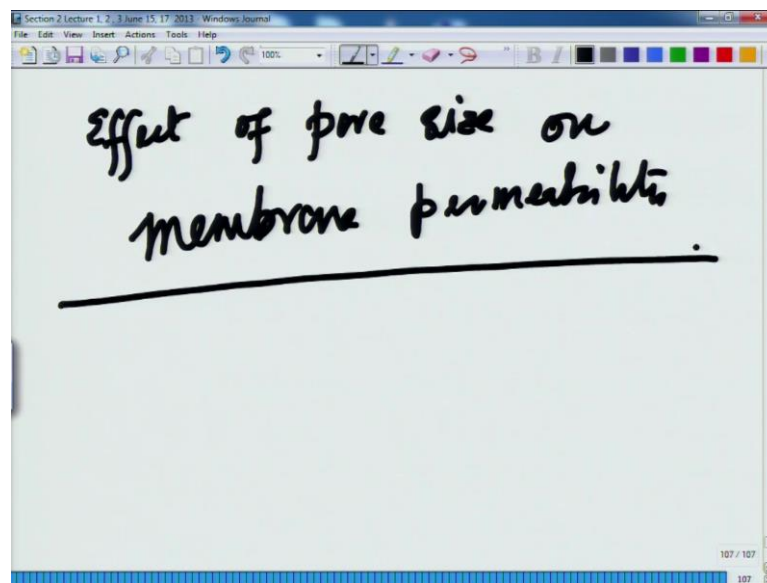 Section 2 Lecture 1, 2 , 3 June 15, 17 2013 - Windows Journal
File Edit View Insert Actions Tools Help
100% B I
Effect of pore size on
membrane permeability
107 / 107
107